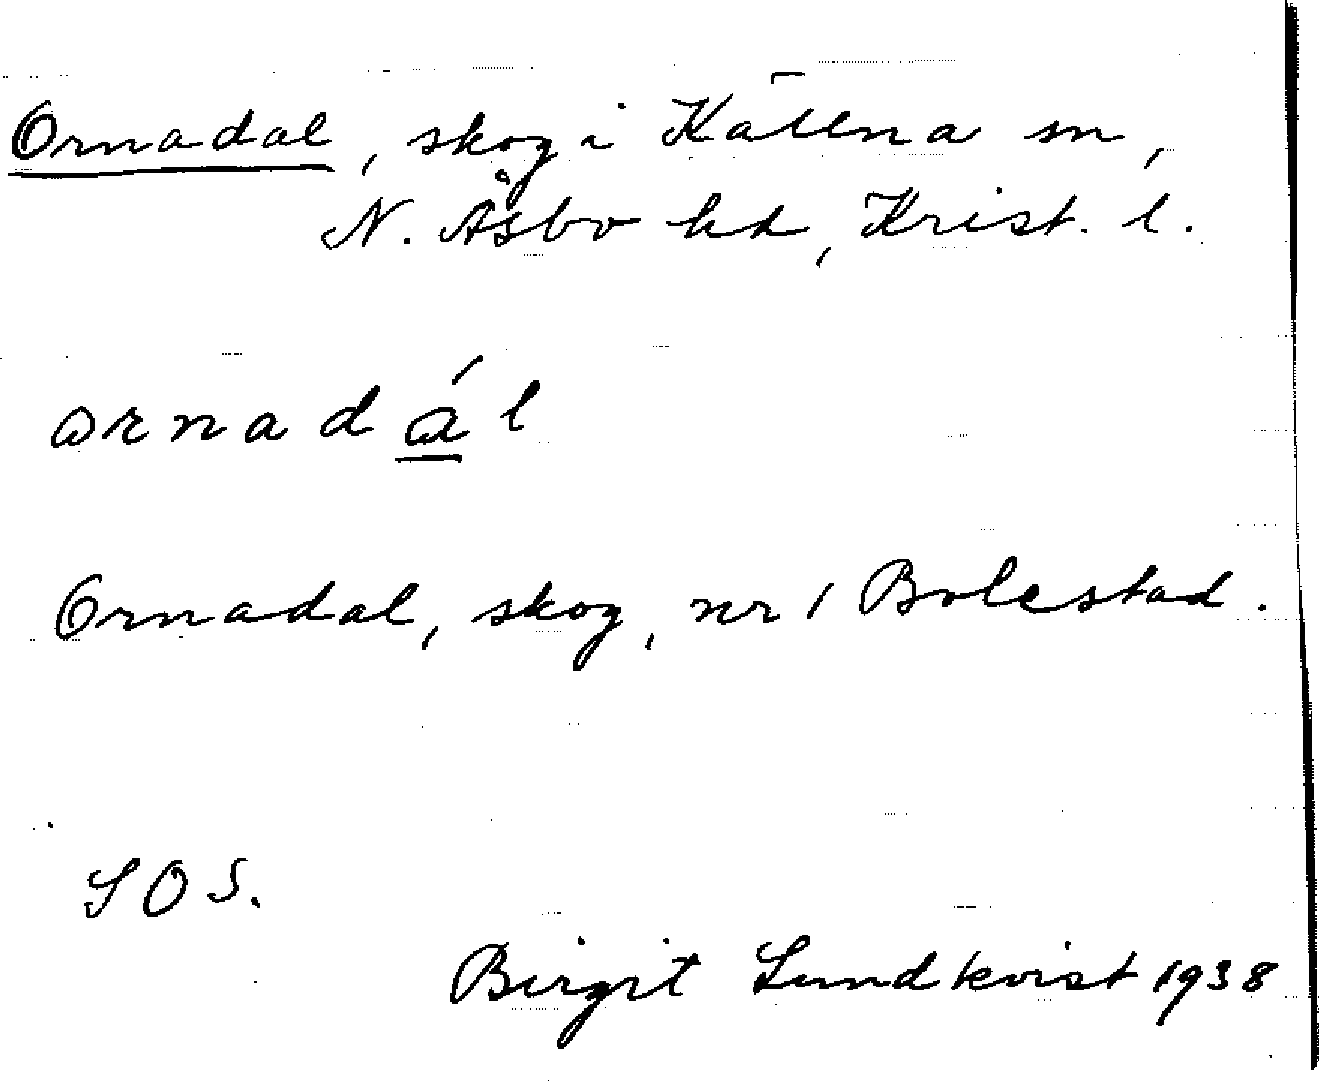 Ornadal, skog i Källna sn,
N. Åsbo hd, Krist. l.
ornadál
Ornadal, skog, nr 1 Bolestad.
SOS.
Birgit Lundkvist 1938